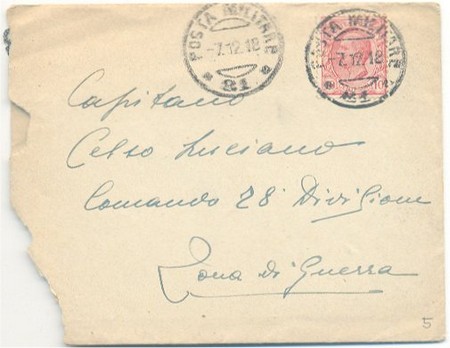 POSTA MILITARE
-7.12.18
* 21 *
POSTA MILITARE
-7.12.18
Capitano
Celso Luciano
Comando 28ª Divisione
Zona di Guerra
5